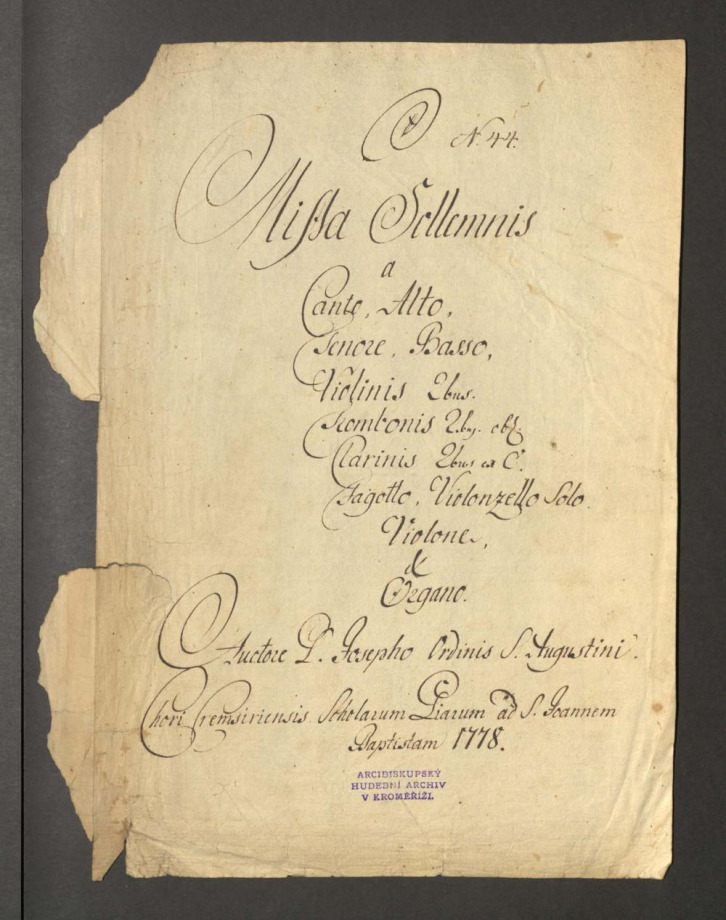 N. 44.
Missa Sollemnis
a
Canto, Alto,
Tenore, Basso,
Violinis 2bus.
Trombonis 2bq. obl.
Clarinis 2bus ex C.
Fagotto, Violonzello Solo.
Violone,
&
Organo.
Auctore P. Josepho Ordinis S. Augustini.
Chori Cremsiriensis Scholarum Piarum ad S. Joannem
Baptistam 1778.
ARCIBISKUPSKÝ
HUDEBNÍ ARCHIV
V KROMĚŘÍŽI.